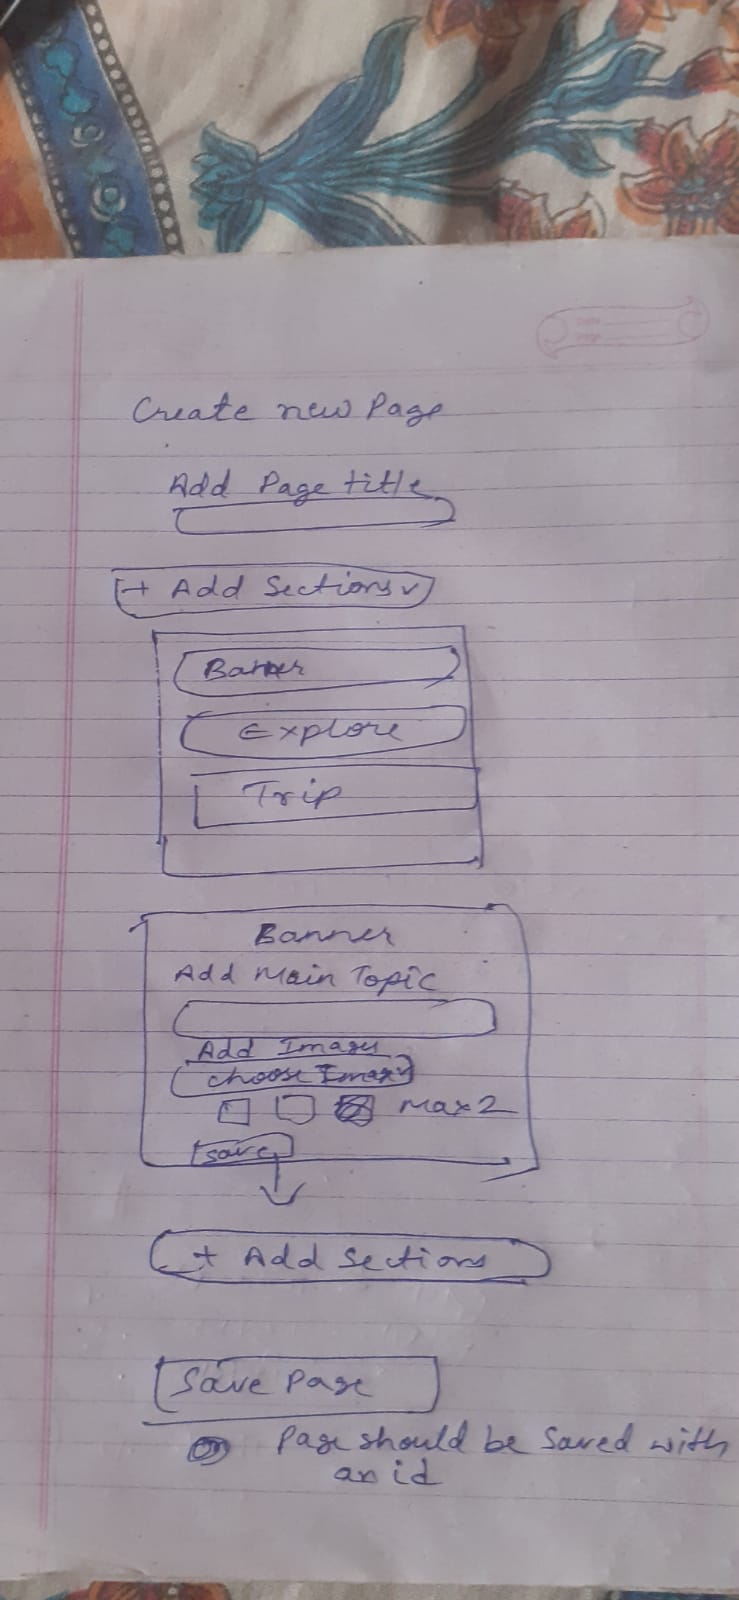 Create new Page
Add Page title
+ Add Sections
Banner
Explore
Trip
Banner
Add Main Topic
Add Images
choose Image
Max 2
save
+ Add Sections
Save Page
Page should be saved with
an id